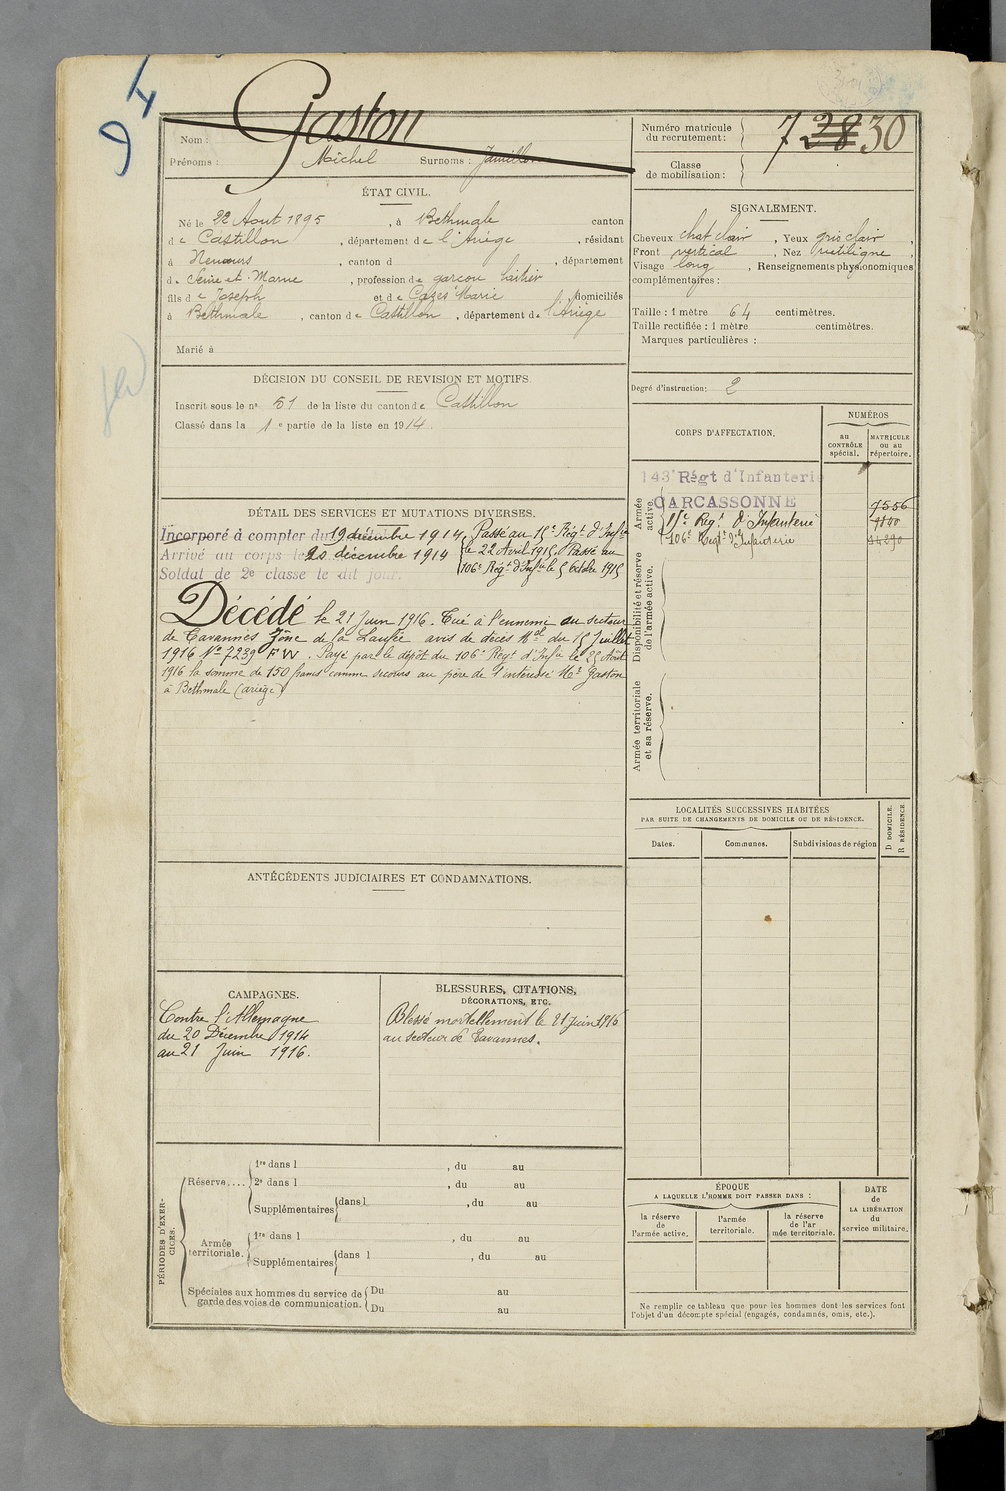 94
Gaston
Nom :
Prénoms : Michel Surnoms :
Numéro matricule
du recrutement : 7 28 30
Classe
de mobilisation :
ÉTAT CIVIL.
Né le 22 Aout 1895, à Bethmale canton
de Castillon, département de l'Ariège, résidant
à Nemours, canton d , département
d. Seine et Marne, profession de garçon laitier
fils de Joseph et de Cazes Marie domiciliés
à Bethmale, canton de Castillon, département de l'Ariège
Marié à
SIGNALEMENT.
Cheveux chat clair, Yeux gris clair,
Front vertical, Nez rectiligne,
Visage long, Renseignements physionomiques
complémentaires :
Taille : 1 mètre 64 centimètres.
Taille rectifiée : 1 mètre centimètres.
Marques particulières :
Degré d'instruction : 2
DÉCISION DU CONSEIL DE REVISION ET MOTIFS
Inscrit sous le n° 51 de la liste du canton de Castillon
Classé dans la 1e partie de la liste en 1914.
CORPS D'AFFECTATION.
NUMÉROS
au
CONTRÔLE
spécial.
MATRICULE
ou au
répertoire.
Armée
active.
143e Régt d'Infanterie
CARCASSONNE 7556
15e Régt d'Infanterie
106e Regt d'Infanterie
Disponibilité et réserve
de l'armée active.
Armée territoriale
et sa réserve.
DÉTAIL DES SERVICES ET MUTATIONS DIVERSES.
Incorporé à compter du 19 décembre 1914. Passé au 15e Régt d'Infie
Arrivé au corps le 20 décembre 1914 le 22 Avril 1915. Passé au
Soldat de 2e classe le dit jour. 106e Régt d'Infie le 5 Octobre 1915
Décédé le 21 Juin 1916. Tué à l'ennemi au secteur
de Tavannes Zône de la Laufée avis de décès Mel du 15 Juillet
1916 No 7239 FW. Payé par le dépôt du 106e Regt d'Infie le 25 Août
1916 la somme de 150 francs comme secours au père de l'intéressé Mr Gaston
à Bethmale (ariège)
LOCALITÉS SUCCESSIVES HABITÉES
PAR SUITE DE CHANGEMENTS DE DOMICILE OU DE RÉSIDENCE.
D DOMICILE.
R RÉSIDENCE.
Dates. Communes. Subdivisions de région
ANTÉCÉDENTS JUDICIAIRES ET CONDAMNATIONS.
CAMPAGNES.
Contre l'Allemagne
du 20 Décembre 1914
au 21 Juin 1916.
BLESSURES, CITATIONS,
DÉCORATIONS, ETC.
Blessé mortellement le 21 Juin 1916
au secteur de Tavannes.
PÉRIODES D'EXER-
CICES.
Réserve....
1re dans l , du au
2e dans l , du au
Supplémentaires dans l , du au
Armée
territoriale.
1re dans l , du au
Supplémentaires dans l , du au
Spéciales aux hommes du service de
garde des voies de communication.
Du au
Du au
ÉPOQUE
A LAQUELLE L'HOMME DOIT PASSER DANS :
la réserve
de
l'armée active.
l'armée
territoriale.
la réserve
de l'ar
mée territoriale.
DATE
de
LA LIBÉRATION
du
service militaire.
Ne remplir ce tableau que pour les hommes dont les services font
l'objet d'un décompte spécial (engagés, condamnés, omis, etc.).